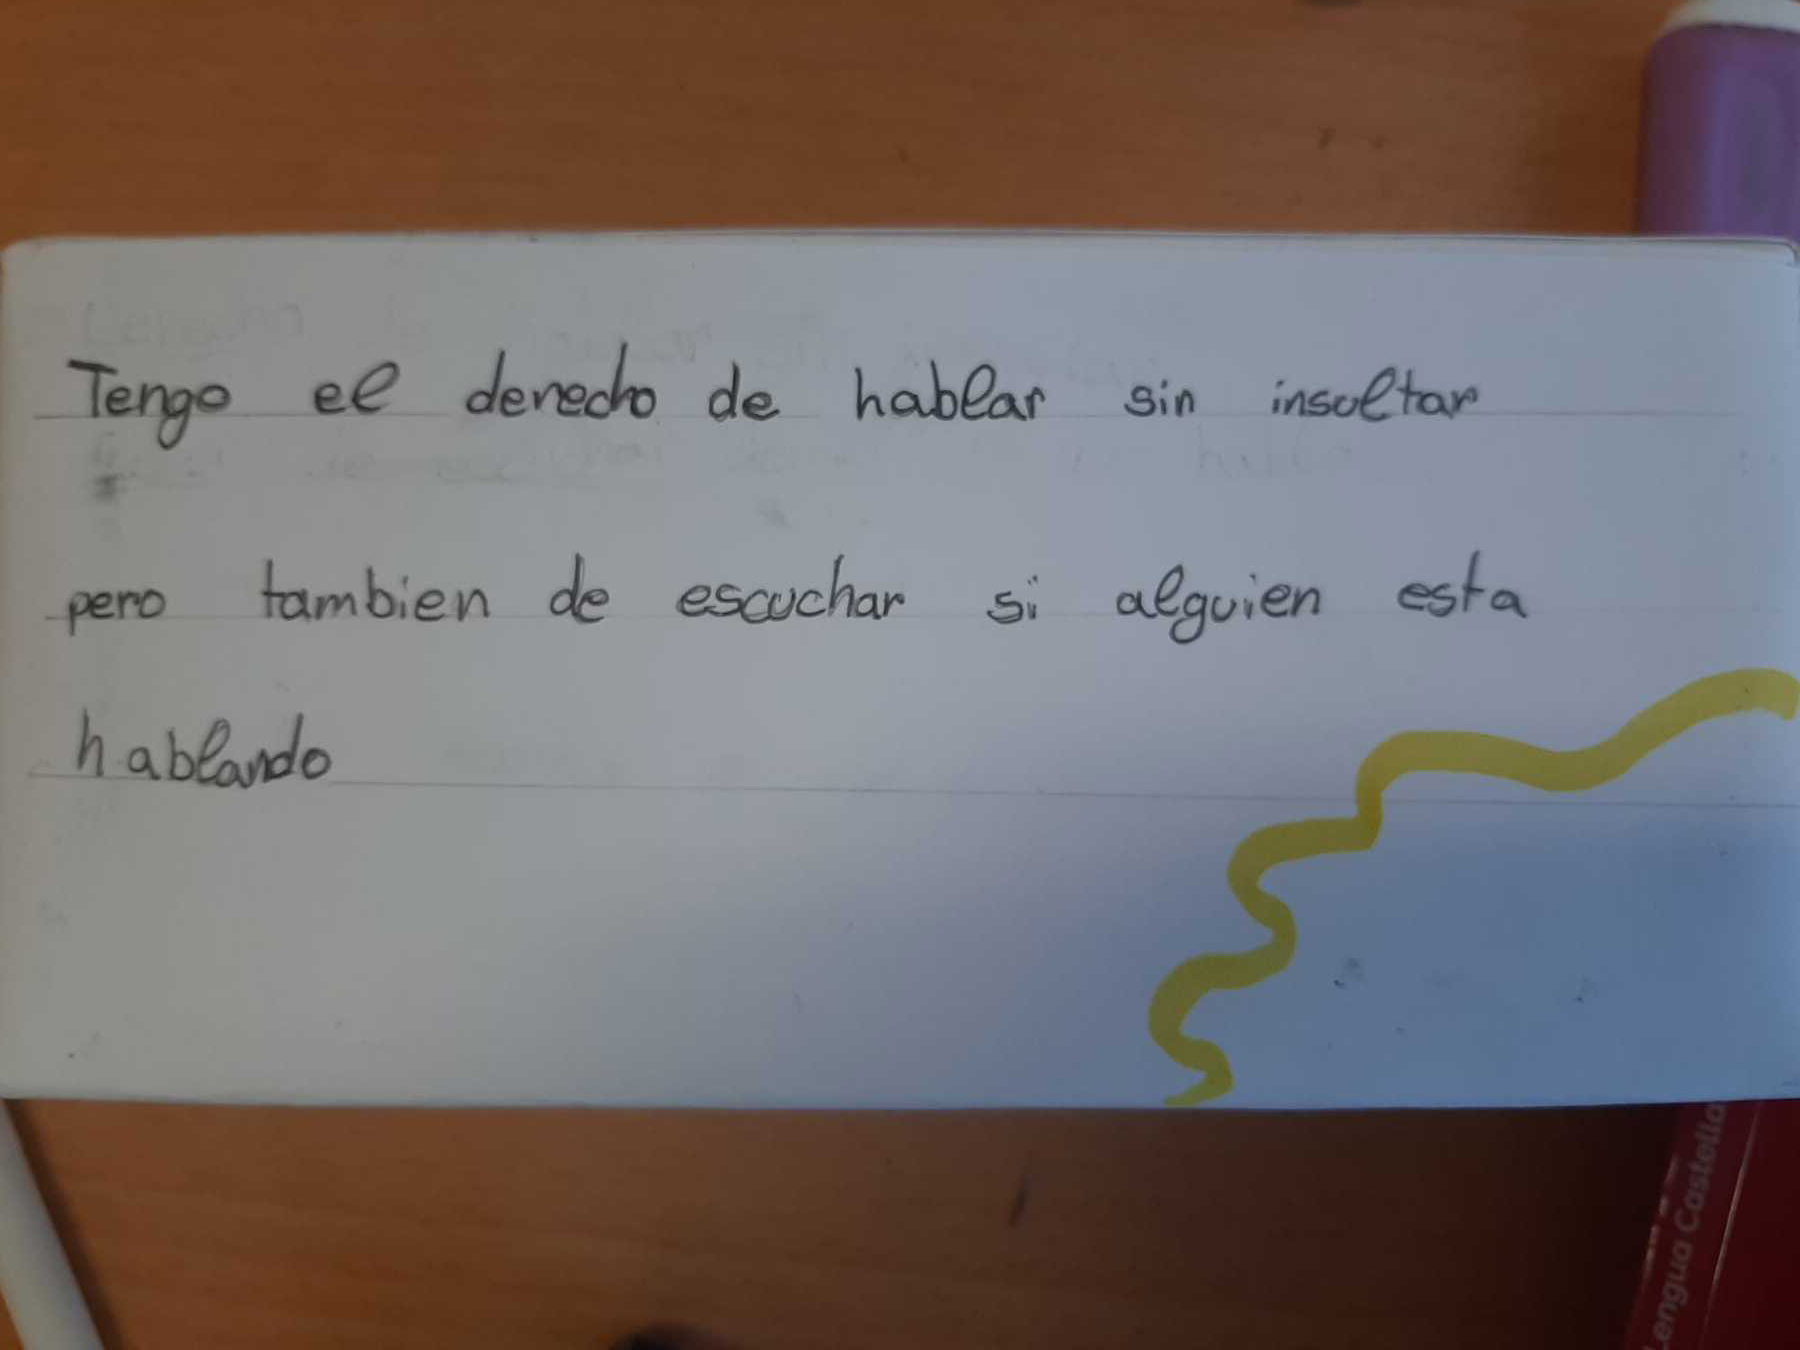 Tengo el derecho de hablar sin insultar
pero tambien de escuchar si alguien esta
hablando
Lengua Castella